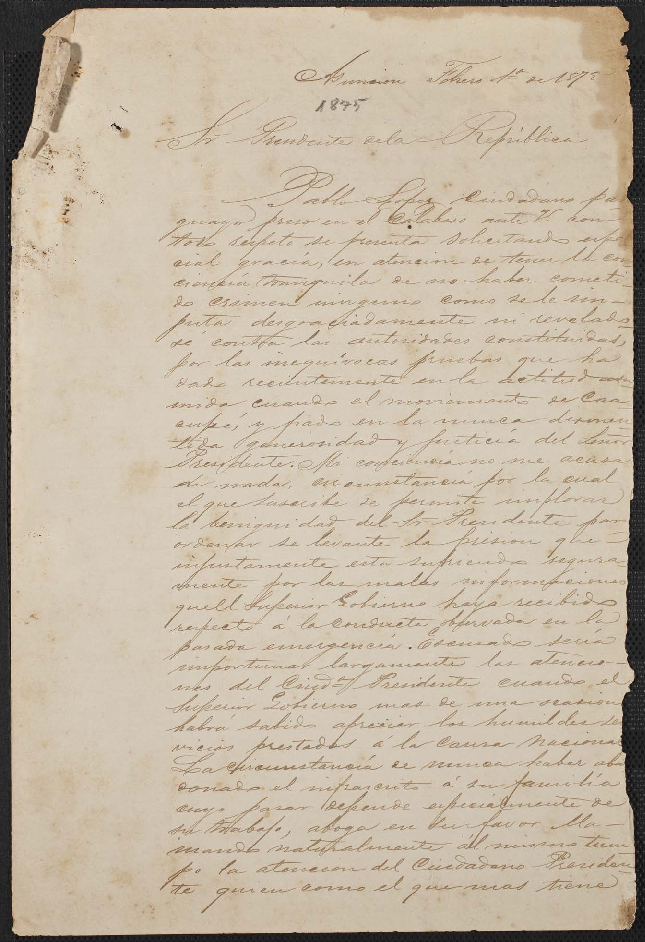 Asuncion Febrero 1º de 187
1875
Sr Presidente de la República
Pablo Lopez ciudadano pa
raguayo preso en el Cabildo ante VE con
todo respeto se presenta solicitando espe
cial gracia, en atencion de tener la con
ciencia tranquila de no haber cometi
do crimen ninguno como se le im
puta desgraciadamente ni revelado
se contra las autoridades constituidas,
por las inequívocas pruebas que ha
dado recientemente en la actitud asu
mida cuando el movimiento de Caa
cupé, y fiado en la nunca desmen
tida generosidad y justicia del Señor
Presidente. Mi conciencia no me acusa
de nada, circunstancia por la cual
el que suscribe se permite implorar
la benignidad del Sr Presidente para
ordenar se levante la prision que
injustamente esta sufriendo segura
mente por las malas informaciones
que el Superior Gobierno haya recibido
respecto á la conducta observada en la
pasada emergencia. Escusado seria
importunar largamente las atencio
nes del Ciudno Presidente cuando el
Superior Gobierno mas de una ocasion
habrá sabido apreciar los humildes ser
vicios prestados á la causa nacional
La circunstancia de nunca haber aba
donado el infrascrito á su familia
cuyo pasar depende especialmente de
su trabajo, aboga en su favor lla
mando naturalmente al mismo tiem
po la atencion del Ciudadano Presiden
te quien como el que mas tiene